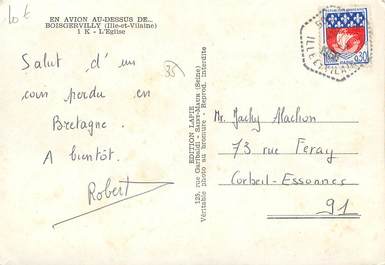 10 €
EN AVION AU-DESSUS DE...
BOISGERVILLY (Ille-et-Vilaine)
1 K - L'Eglise
35
Salut d'un
coin perdu en
Bretagne.
A bientôt.
Robert
EDITION LAPIE
125, rue Garibaldi - Saint-Maur (Seine)
Véritable photo au bromure - Reprod. interdite
REPUBLIQUE FRANÇAISE
0,30
PARIS
ILLE-ET-VILAINE
Mr. Jacky
73 rue Feray
Corbeil-Essonnes
91